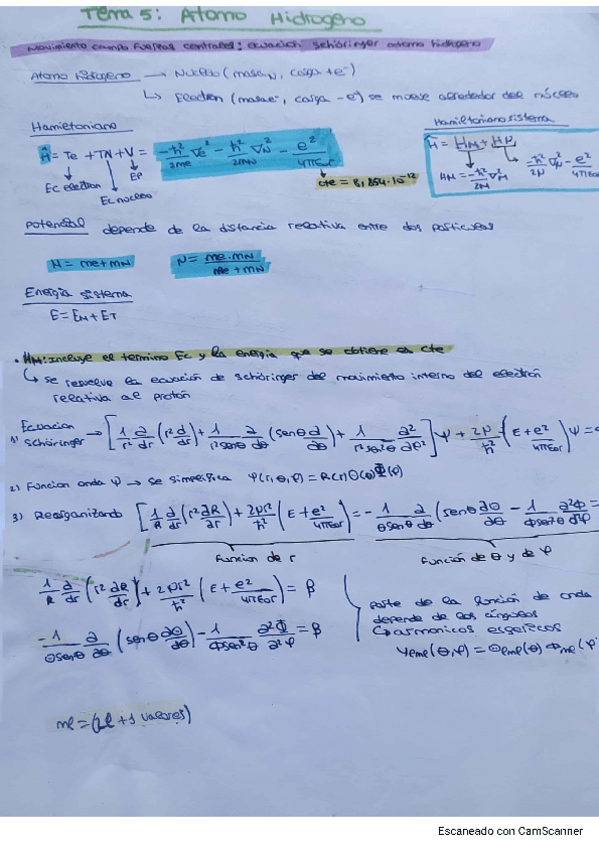 Tema 5: Atomo Hidrogeno
Movimiento campo fuerzas centrales: ecuacion schöringer atomo hidrogeno
Atomo hidrogeno → Nucleo (masa N, carga + e⁻)
↳ Electron (masa e⁻, carga - e⁻) se mueve alrededor del núcleo
Hamiltoniano
Ĥ = Te + TN + V = -ħ²/2me ∇e² - ħ²/2mN ∇N² - e²/4πεor
Ec electron
Ec nucleo
EP
cte = 8,854·10⁻¹²
Hamiltoniano sistema
Ĥ = HM + HN
HM = -ħ²/2M ∇²M
-ħ²/2N ∇² - e²/4πεor
Potencial depende de la distancia relativa entre dos particulas
M = me + mN
N = me·mN / me + mN
Energia sistema
E = EM + ET
• HM: incluye el termino Ec y la energia que se obtiene es cte
↳ se resuelve la ecuación de schöringer del movimiento interno del electrón
relativa al protón
1) Ecuacion schöringer → [1/r² ∂/∂r (r² ∂/∂r) + 1/r²senθ ∂/∂θ (senθ ∂/∂θ) + 1/r²sen²θ ∂²/∂θ²] Ψ + 2N/ħ² (E + e²/4πεor) Ψ =
2) Funcion onda Ψ → se simplifica Ψ(r,θ,φ) = R(r) Θ(θ) Φ(φ)
3) Reorganizando [1/R ∂/∂r (r² ∂R/∂r) + 2Nr²/ħ² (E + e²/4πεor)] = -1/Θsenθ ∂/∂θ (senθ ∂Θ/∂θ - 1/Φsen²θ ∂²Φ/∂²φ =
Funcion de r
Función de θ y de φ
1/R ∂/∂r (r² ∂R/∂r) + 2Nr²/ħ² (E + e²/4πεor) = β
-1/Θsenθ ∂/∂θ (senθ ∂Θ/∂θ) - 1/Φsen²θ ∂²Φ/∂²φ = β
parte de la función de onda
depende de los ángulos
↳ armonicos esfericos
Yeme(θ,φ) = Θeme(θ) Φme(φ)
me = (2l + 1 valores)
Escaneado con CamScanner